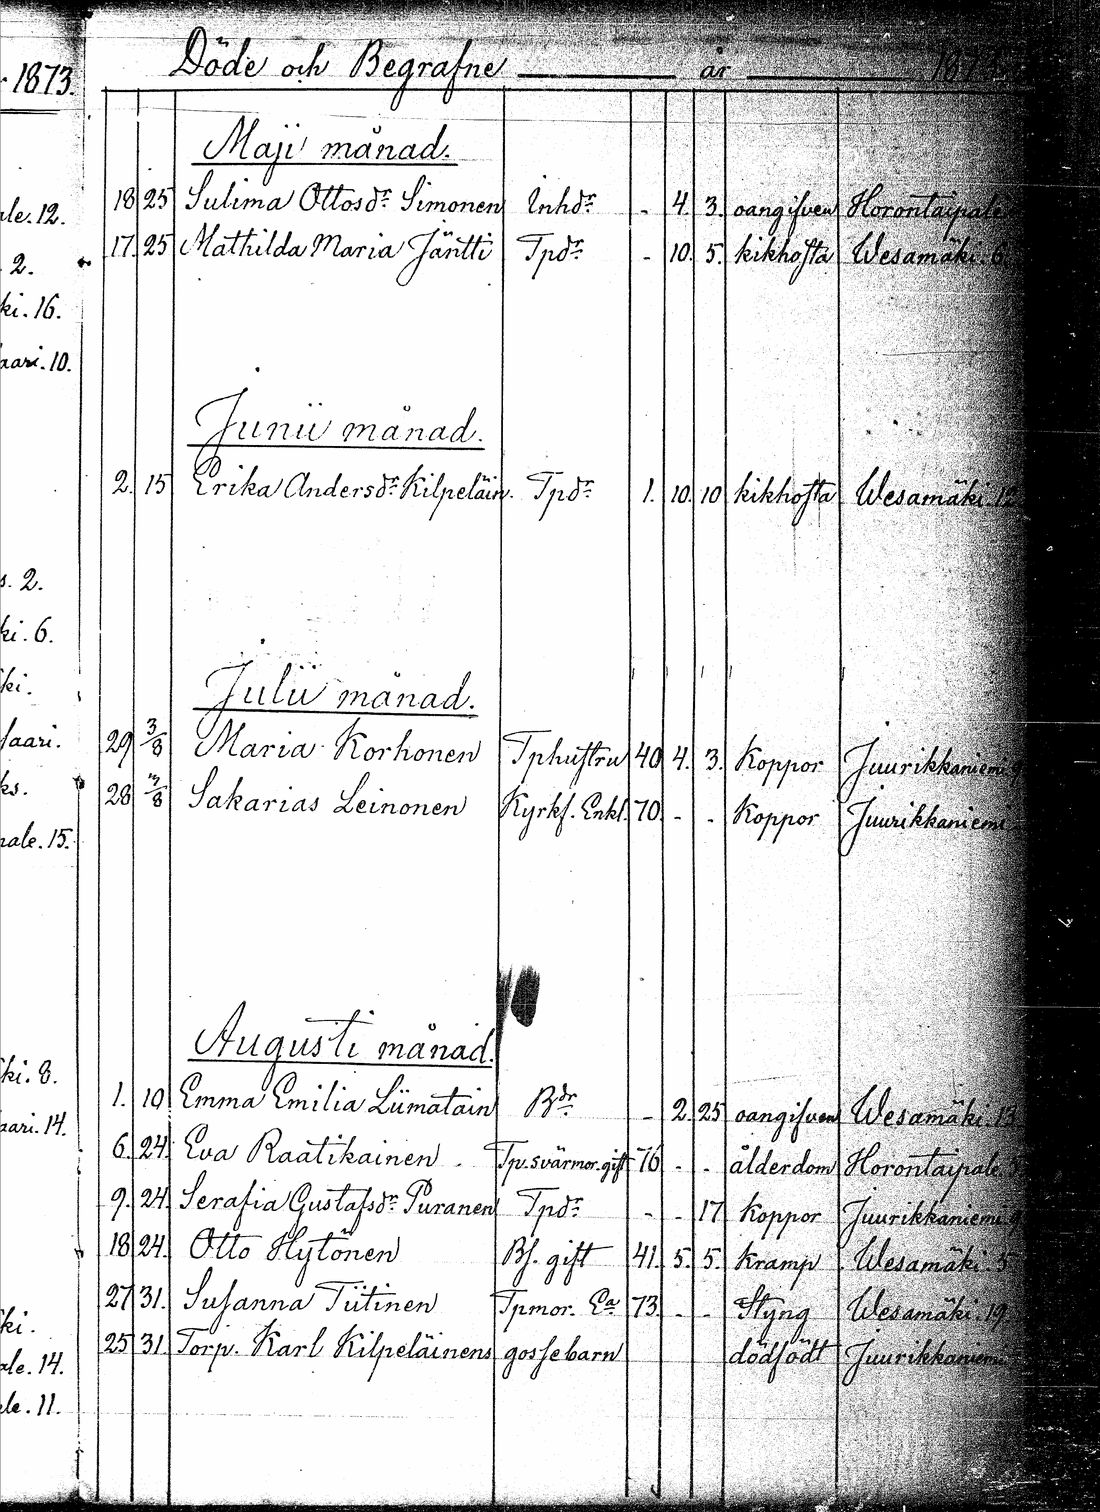 1873.
Döde och Begrafne år 1873.
Maji månad.
ale. 12.
18 25 Sulima Ottosdr Simonen Inhdr - 4. 3. oangifven Horontaipale
2.
17. 25 Mathilda Maria Jäntti Tpdr - 10. 5. kikhosta Wesamäki. 6.
ki. 16.
aari. 10.
Junii månad.
2. 15 Erika Andersdr Kilpeläin. Tpdr 1. 10. 10 kikhosta Wesamäki. 12
s. 2.
ki. 6.
ki.
Julii månad.
saari.
29 3/8 Maria Korhonen Tphustru 40 4. 3. Koppor Juurikkaniemi
ks.
28 7/8 Sakarias Leinonen Kyrkf. Enkl. 70. - - Koppor Juurikkaniemi
pale. 15.
Augusti månad.
ki. 8.
1. 10 Emma Emilia Liimatain Bdr - 2. 25 oangifven Wesamäki. 13
aari. 14.
6. 24. Eva Raatikainen Tp. svärmor. gift 76 - - ålderdom Horontaipale. 5
9. 24. Serafia Gustafsdr Puranen Tpdr - - 17 Koppor Juurikkaniemi
18 24. Otto Hytönen Bs. gift 41. 5. 5. Kramp Wesamäki. 5
27 31. Susanna Tiitinen Tpmor. Ea 73. - - Styng Wesamäki. 19
ki.
25 31. Torp. Karl Kilpeläinens gossebarn dödfödt Juurikkaniemi
ale. 14.
ale. 11.